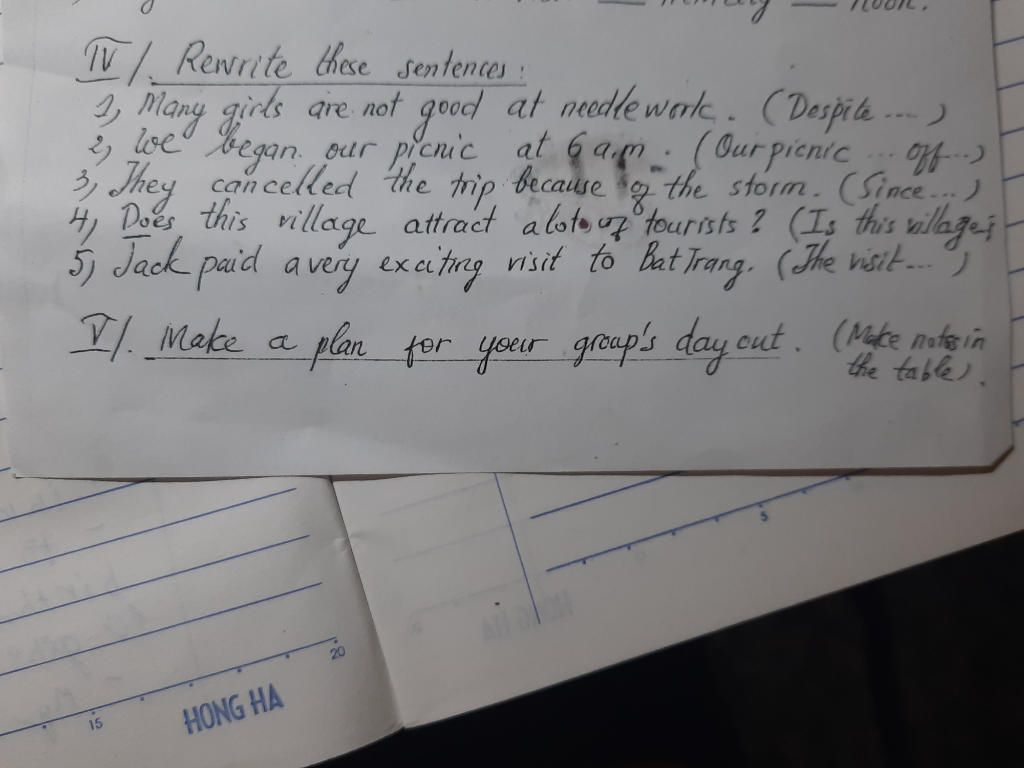 noon.
IV/. Rewrite these sentences:
1, Many girls are not good at needlework. (Despite ....)
2, We began our picnic at 6 a.m. (Our picnic ... off...)
3, They cancelled the trip because of the storm. (Since...)
4, Does this village attract a lot of tourists? (Is this village;
5, Jack paid a very exciting visit to Bat Trang. (The visit... )
V/. Make a plan for your group's day out. (Make notes in
the table).
5
20
15
HONG HA
HONG HA